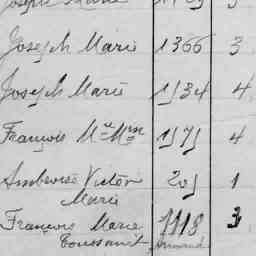 Joseph Marie
Joseph Marie 1366 3
Joseph Marie 1534 4
François Mie 1575 4
Ambroise Victor 205 1
Marie
François Marie 1118 3
Toussaint Armand